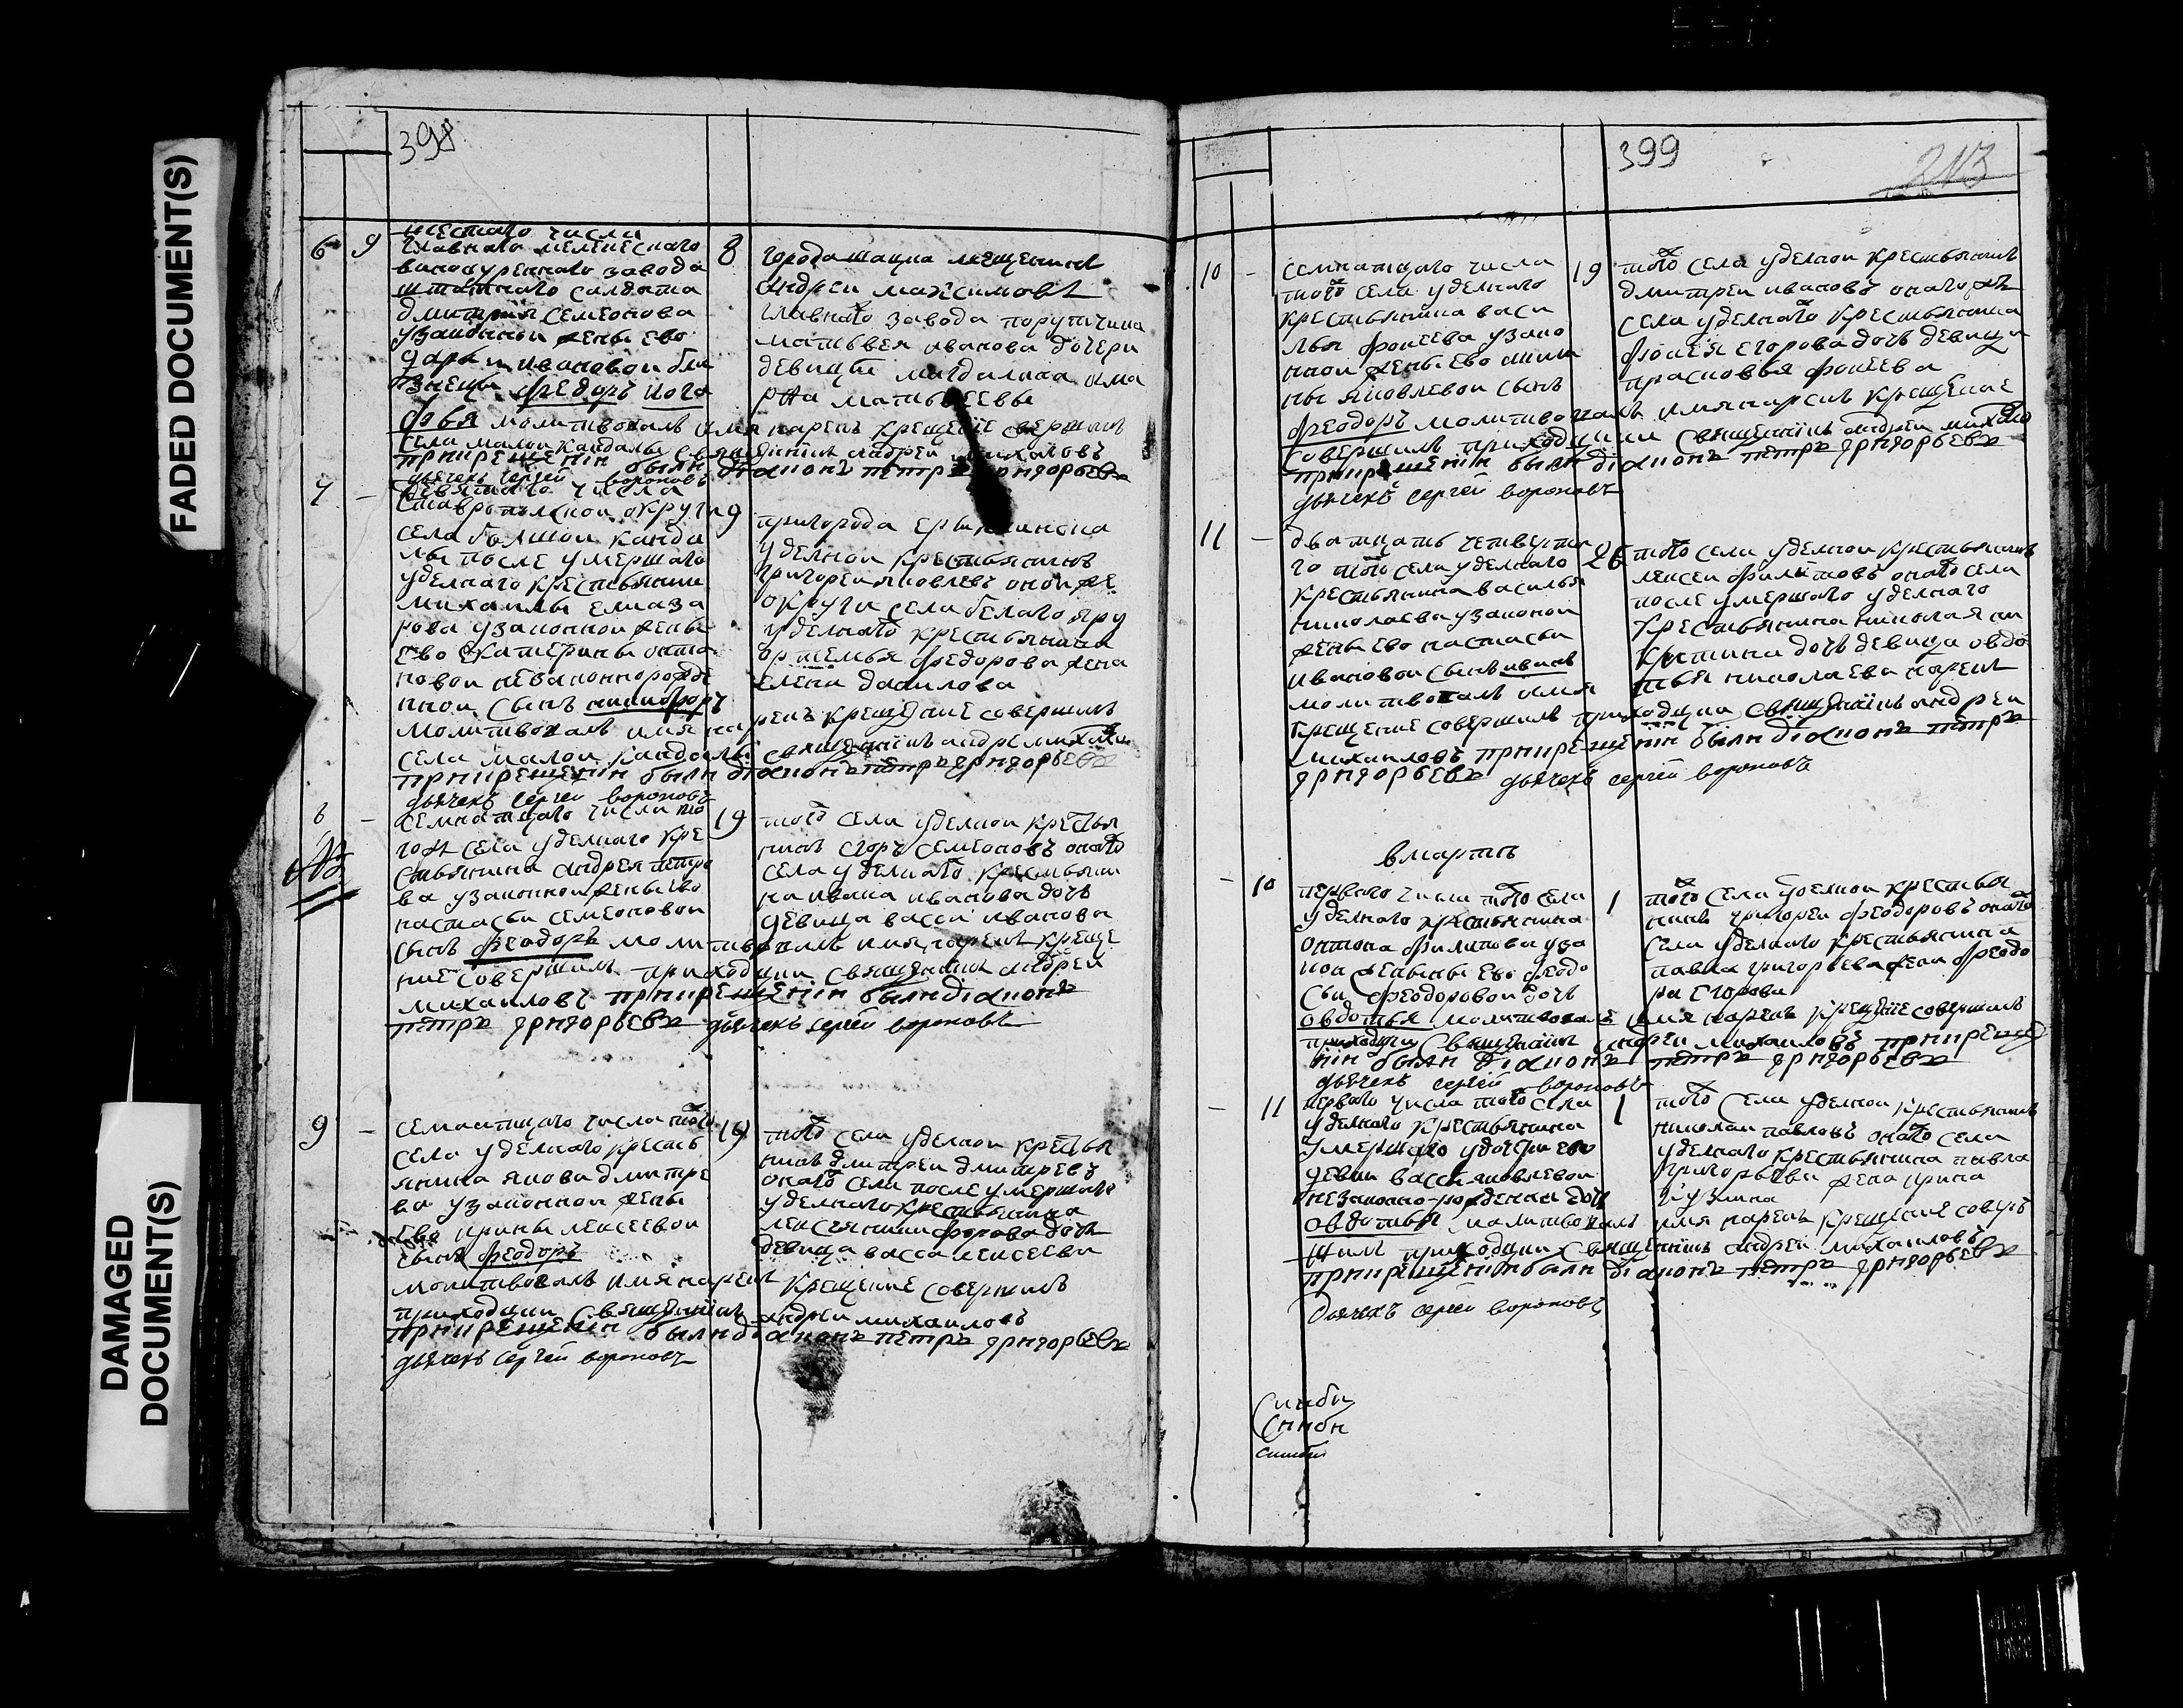 FADED DOCUMENT(S)
DAMAGED
DOCUMENT(S)
398
6 9
шестаго числа
главнаго мелекескаго
винокуреннаго завода
штатнаго салдата
дмитрия Семеонова
узаконной жены ево
дарьи ивановой бли
знецы федоръ
8
города мещенинъ
андреи максимовъ
главнаго завода порутчика
матьвея иванова дочери
девицы магдалина и ма
рѳа матьвеевы
молитвовалъ имя нарекъ крещение совершилъ
села малои кандалы священникъ андреи михаиловъ
при крещении были диаконъ петръ григорьевъ
дьячекъ сергей вороновъ
7 -
девятаго числа
ставропольской округи
села большои канда
лы после умершаго
уделнаго крестьянина
михаилы елиаза
рова узаконнои жены
ево екатерины онто
новои незаконнорожде
ннои сынъ никифоръ
9
пригорода ерыклинска
уделнои крестьянинъ
григореи яковлевъ онои же
округи села белаго яру
уделнаго крестьянина
артемья федорова жена
елена данилова
молитвовалъ имя нарекъ крещение совершилъ
села малои кандалы священникъ андреи михаи
при крещении были диаконъ петръ григорьевъ
дьячекъ сергей вороновъ
8 -
семнатцаго числа то
гожъ села уделнаго кре
стьянина андрея петро
ва узаконнои жены ево
настасьи семеоновои
сынъ феодоръ
19
того села уделнои крестья
нинъ егоръ семеоновъ онаго
села уделнаго крестьяни
на ивана иванова дочь
девица васса иванова
молитвовалъ имя нарекъ креще
ние совершилъ приходцкии священникъ андреи
михаиловъ при крещении были диаконъ
петръ григорьевъ дьячекъ сергей вороновъ
9 -
семнатцаго числа того
села уделнаго кресть
янина якова дмитре
ва узаконнои жены
ево ирины лексеевои
сынъ феодоръ
19
того села уделнои крестья
нинъ дмитреи дмитревъ
онаго села после умершаго
уделнаго крестьянина
лексея никифорова дочь
девица васса лексеева
молитвовалъ имя нарекъ крещение совершилъ
приходцкии священникъ андреи михаиловъ
при крещении были диаконъ петръ григорьевъ
дьячекъ сергей вороновъ
399
213
10 -
семнатцаго числа
того села уделнаго
крестьянина васи
лья фокеева узако
ннои жены ево
ны яковлевои сынъ
феодоръ
19
того села уделнои крестьянинъ
дмитреи ивановъ онагожъ
села уделнаго крестьянина
фокея егорова дочь девица
прасковья фокеева
молитвовалъ имя нарекъ крещение
совершилъ приходцкии священникъ андреи михаило
при крещении были диаконъ петръ григорьевъ
дьячекъ сергей вороновъ
11 -
дватцать четверта
го того села уделнаго
крестьянина василья
николаева узаконои
жены ево настасьи
ивановои сынъ иванъ
молитвовалъ имя
26
того села уделнои крестьянинъ
лексеи филиповъ онаго села
после умершаго уделнаго
крестьянина николая ни
китина дочь девица овдо
тья николаева нарекъ
крещение совершилъ приходцкии священникъ андреи
михаиловъ при крещении были диаконъ петръ
григорьевъ дьячекъ сергей вороновъ
в марте
- 10
перваго числа того села
уделнаго крестьянина
онтона филипова уза
кои жены ево феодо
сьи феодоровои дочь
овдотья
1
того села уделнои крестья
нинъ григореи феодоровъ онаго
села уделнаго крестьянина
павла григорьева жена феодо
ра егорова
молитвовалъ имя нарекъ крещение совершилъ
приходцкии священникъ андреи михаиловъ при креще
нии были диаконъ петръ григорьевъ
дьячекъ сергей вороновъ
- 11
перваго числа того села
уделнаго крестьянина
умершаго у дочери ево
девки вассы яковлевои
незаконно-рожденная дочь
овдотья
1
того села уделнои крестьянинъ
николаи павловъ онаго села
уделнаго крестьянина павла
григорьева жена ирина
молитвовалъ имя нарекъ крещение совер
шилъ приходцкии священникъ андреи михаиловъ
при крещении были диаконъ петръ григорьевъ
дьячекъ сергей вороновъ
Симби
Симби
симби